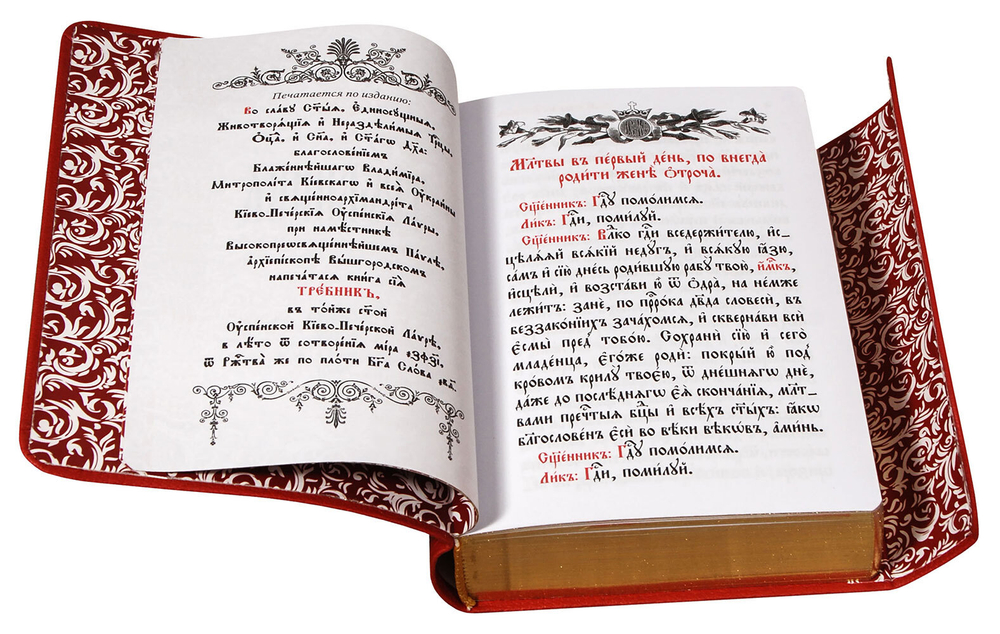 Печатается по изданію:
Во сла́ву Ст҃ы́ѧ, Є҆диносꙋ́щныѧ,
Животворѧ́щїѧ и҆ Нераздѣ́лимыѧ Трⷪ҇цы,
Ѻ҆ц҃а̀, и҆ Сн҃а, и҆ Ст҃а́гѡ Дх҃а:
благослове́нїемъ
Блаже́ннѣйшагѡ Влади́мїра,
Митрополі́та Кі́евскагѡ и҆ всеѧ̀ Оу҆краи́ны
и҆ свѧще́нноархїмандрі́та
Кі́ево-Пече́рскїѧ Оу҆спе́нскїѧ Ла́ѵры,
при намѣ́стникѣ
Высокопреѡсвѧще́ннѣйшемъ Па́ѵлѣ,
а҆рхїепі́скопѣ Вы́шгородскомъ
напеча́тасѧ кни́га сїѧ̀
ТРЕ́БНИКЪ,
въ то́йже ст҃о́й
Оу҆спе́нской Кі́ево-Пече́рской Ла́ѵрѣ,
в лѣ́то ѿ сотворе́нїѧ мі́ра
ѿ Рж҃тва̀ же по пло́ти Бг҃а Сло́ва
Мл҃твы въ пе́рвый де́нь, по внегда̀
роди́ти женѣ̀ ѻ҆троча̀.
Сщ҃е́нникъ: Гдⷭ҇ꙋ помо́лимсѧ.
Ли́къ: Гдⷭ҇и, поми́лꙋй.
Сщ҃е́нникъ: Влⷣко гдⷭ҇и вседержи́телю, и҆с_
цѣлѧ́ѧй всѧ́кїй недꙋ́гъ, и҆ всѧ́кꙋю ꙗ҆́зю,
са́мъ и҆ сїю̀ дне́сь роди́вшꙋю рабꙋ̀ твою̀, и҆́м҃къ,
и҆сцѣлѝ, и҆ возста́ви ю҆̀ ѿ ѻ҆дра̀, на не́мже
лежи́тъ: занѐ, по прⷪ҇ро́ка дв҃да словесѝ, въ
беззако́нїихъ зача́хомсѧ, и҆ скве́рнави всѝ
є҆смы̀ пред̾ тобо́ю. Сохранѝ сїю̀ и҆ сего̀
младе́нца, є҆го́же родѝ: покры́й ю҆̀ под̾
кро́вомъ крилꙋ̀ твоє́ю, ѿ дне́шнѧгѡ днѐ,
да́же до послѣ́днѧгѡ є҆ѧ̀ сконча́нїѧ, мл҃т_
вами пречⷭ҇тыѧ бцⷣы и҆ всѣ́хъ ст҃ы́хъ: ꙗ҆́кѡ
бл҃гослове́нъ є҆сѝ во вѣ́ки вѣкѡ́въ, а҆ми́нь.
Сщ҃е́нникъ: Гдⷭ҇ꙋ помо́лимсѧ.
Ли́къ: Гдⷭ҇и, поми́лꙋй.